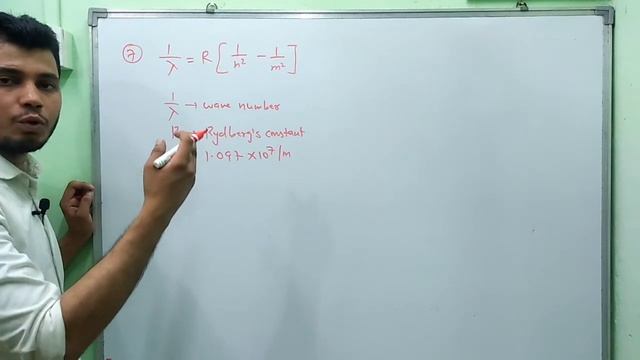 ⑦ 1/λ = R [ 1/n² − 1/m² ]
1/λ → wave number
R → Rydberg's constant
1.097 × 10⁷ /m